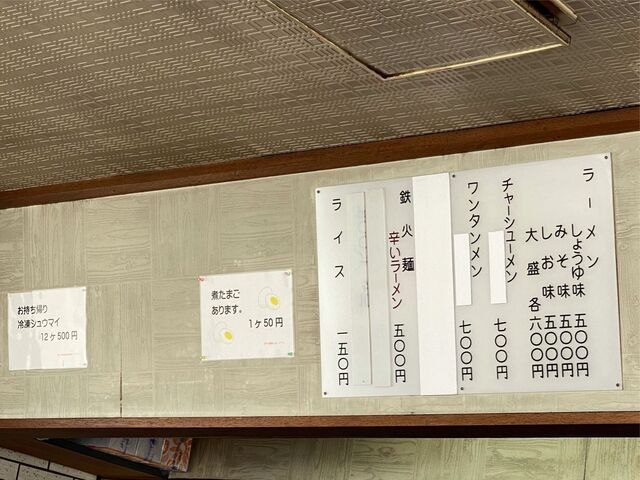 ラーメン
しょうゆ味 五〇〇円
みそ味 五〇〇円
しお味 五〇〇円
大盛 各六〇〇円
チャーシューメン 七〇〇円
ワンタンメン 七〇〇円
鉄火麺
辛いラーメン 五〇〇円
ライス 一五〇円
煮たまご
あります。
1ヶ50円
お持ち帰り
冷凍シュウマイ
12ヶ500円